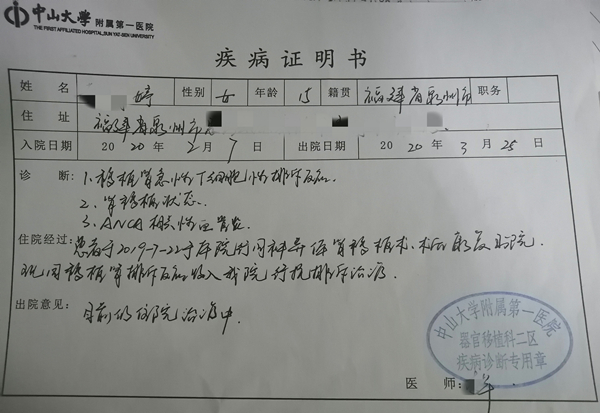 中山大学 附属第一医院
THE FIRST AFFILIATED HOSPITAL, SUN YAT-SEN UNIVERSITY
疾病证明书
姓名 婷 性别 女 年龄 15 籍贯 福建省泉州市 职务
住址 福建省泉州市
入院日期 2020年2月7日 出院日期 2020年3月25日
诊断: 1、移植肾急性T细胞性排斥反应
2、肾移植状态
3、ANCA相关性血管炎
住院经过: 患者于2019-7-22于本院因同种异体肾移植术.术后康复出院.
现因移植肾排斥反应收入我院行抗排斥治疗.
出院意见: 目前仍住院治疗中.
中山大学附属第一医院
器官移植科二区
疾病诊断专用章
医师: